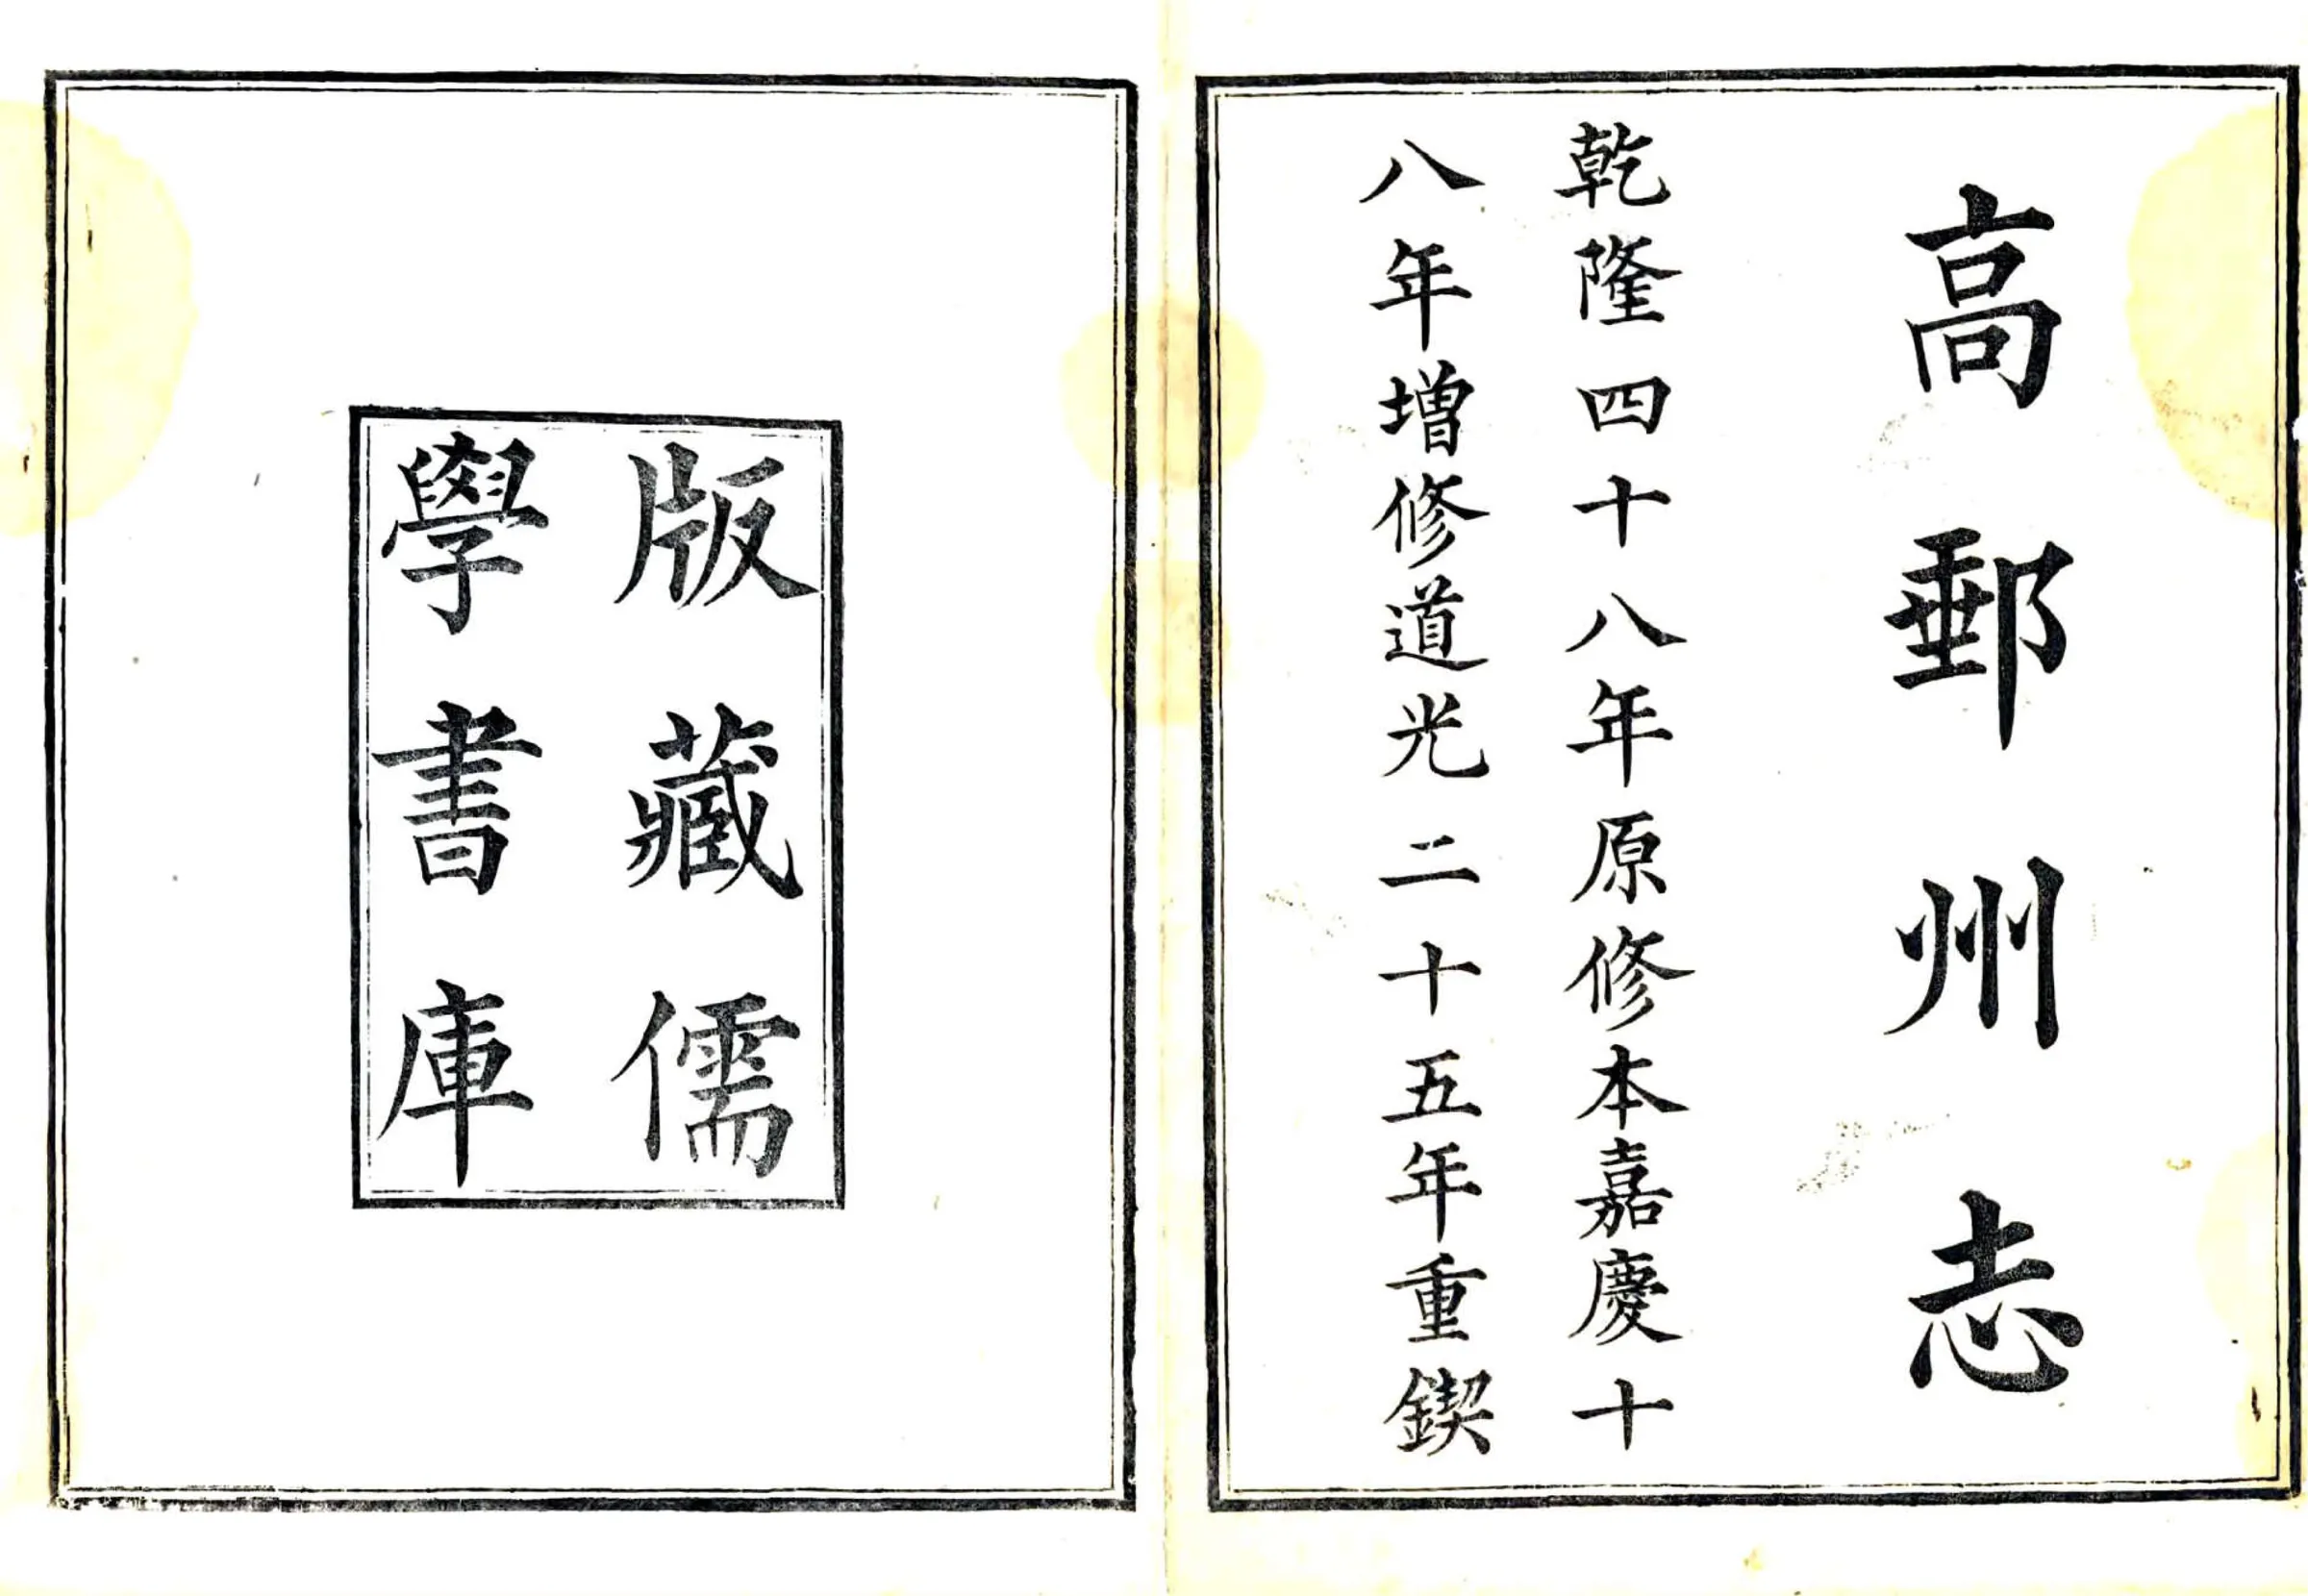 高郵州志
乾隆四十八年原修本嘉慶十
八年增修道光二十五年重鍥
版藏儒
學書庫